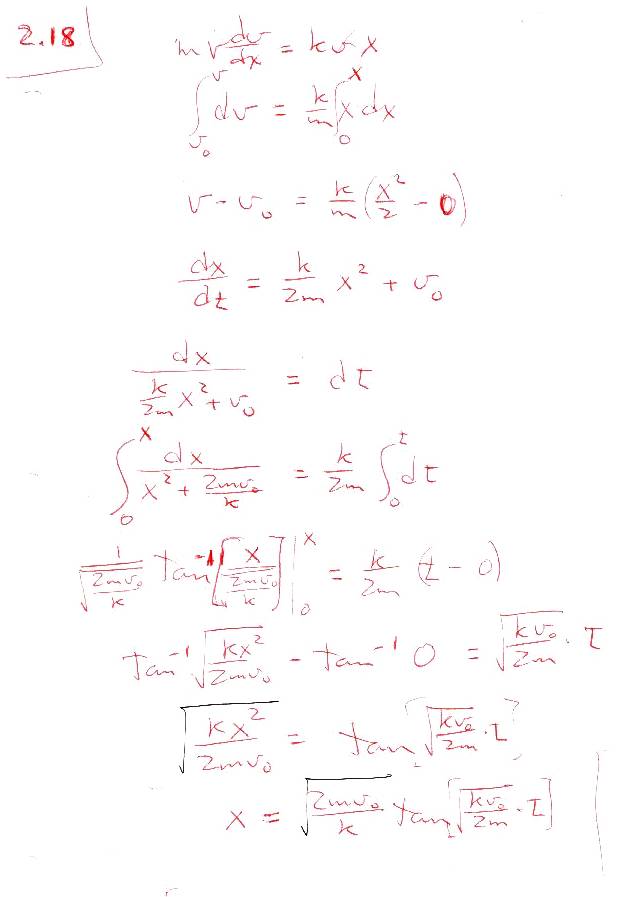 2.18
m v dv/dx = k v x
∫_{v₀}^{v} dv = k/m ∫_{0}^{x} x dx
v - v₀ = k/m (x²/2 - 0)
dx/dt = k/2m x² + v₀
dx / (k/2m x² + v₀) = dt
∫_{0}^{x} dx / (x² + 2mv₀/k) = k/2m ∫_{0}^{t} dt
1/√(2mv₀/k) tan⁻¹[x/√(2mv₀/k)] |_{0}^{x} = k/2m (t - 0)
tan⁻¹ √(kx²/2mv₀) - tan⁻¹ 0 = √(kv₀/2m) · t
√(kx²/2mv₀) = tan[√(kv₀/2m) · t]
x = √(2mv₀/k) tan[√(kv₀/2m) · t]